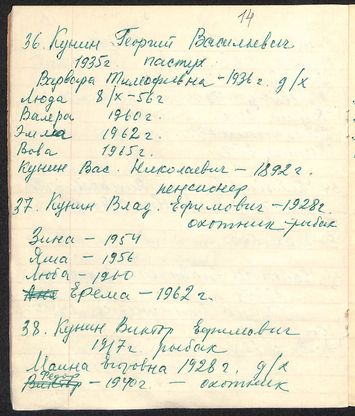 14
36. Кунин Георгий Васильевич
1935г. пастух
Варвара Тимофеевна - 1936г. д/х
Люда 8/X-56г
Валера 1960г.
Эмма 1962г.
Вова 1965г.
Кунин Вас. Николаевич - 1892г.
пенсионер
37. Кунин Влад. Ефимович - 1928г.
охотник-рыбак
Зина - 1954
Яша - 1956
Люба - 1960
Ерема - 1962г.
38. Кунин Виктор Ефимович
1917г. рыбак
Егоровна 1928г. д/х
Федор
- 1940г. - охотник